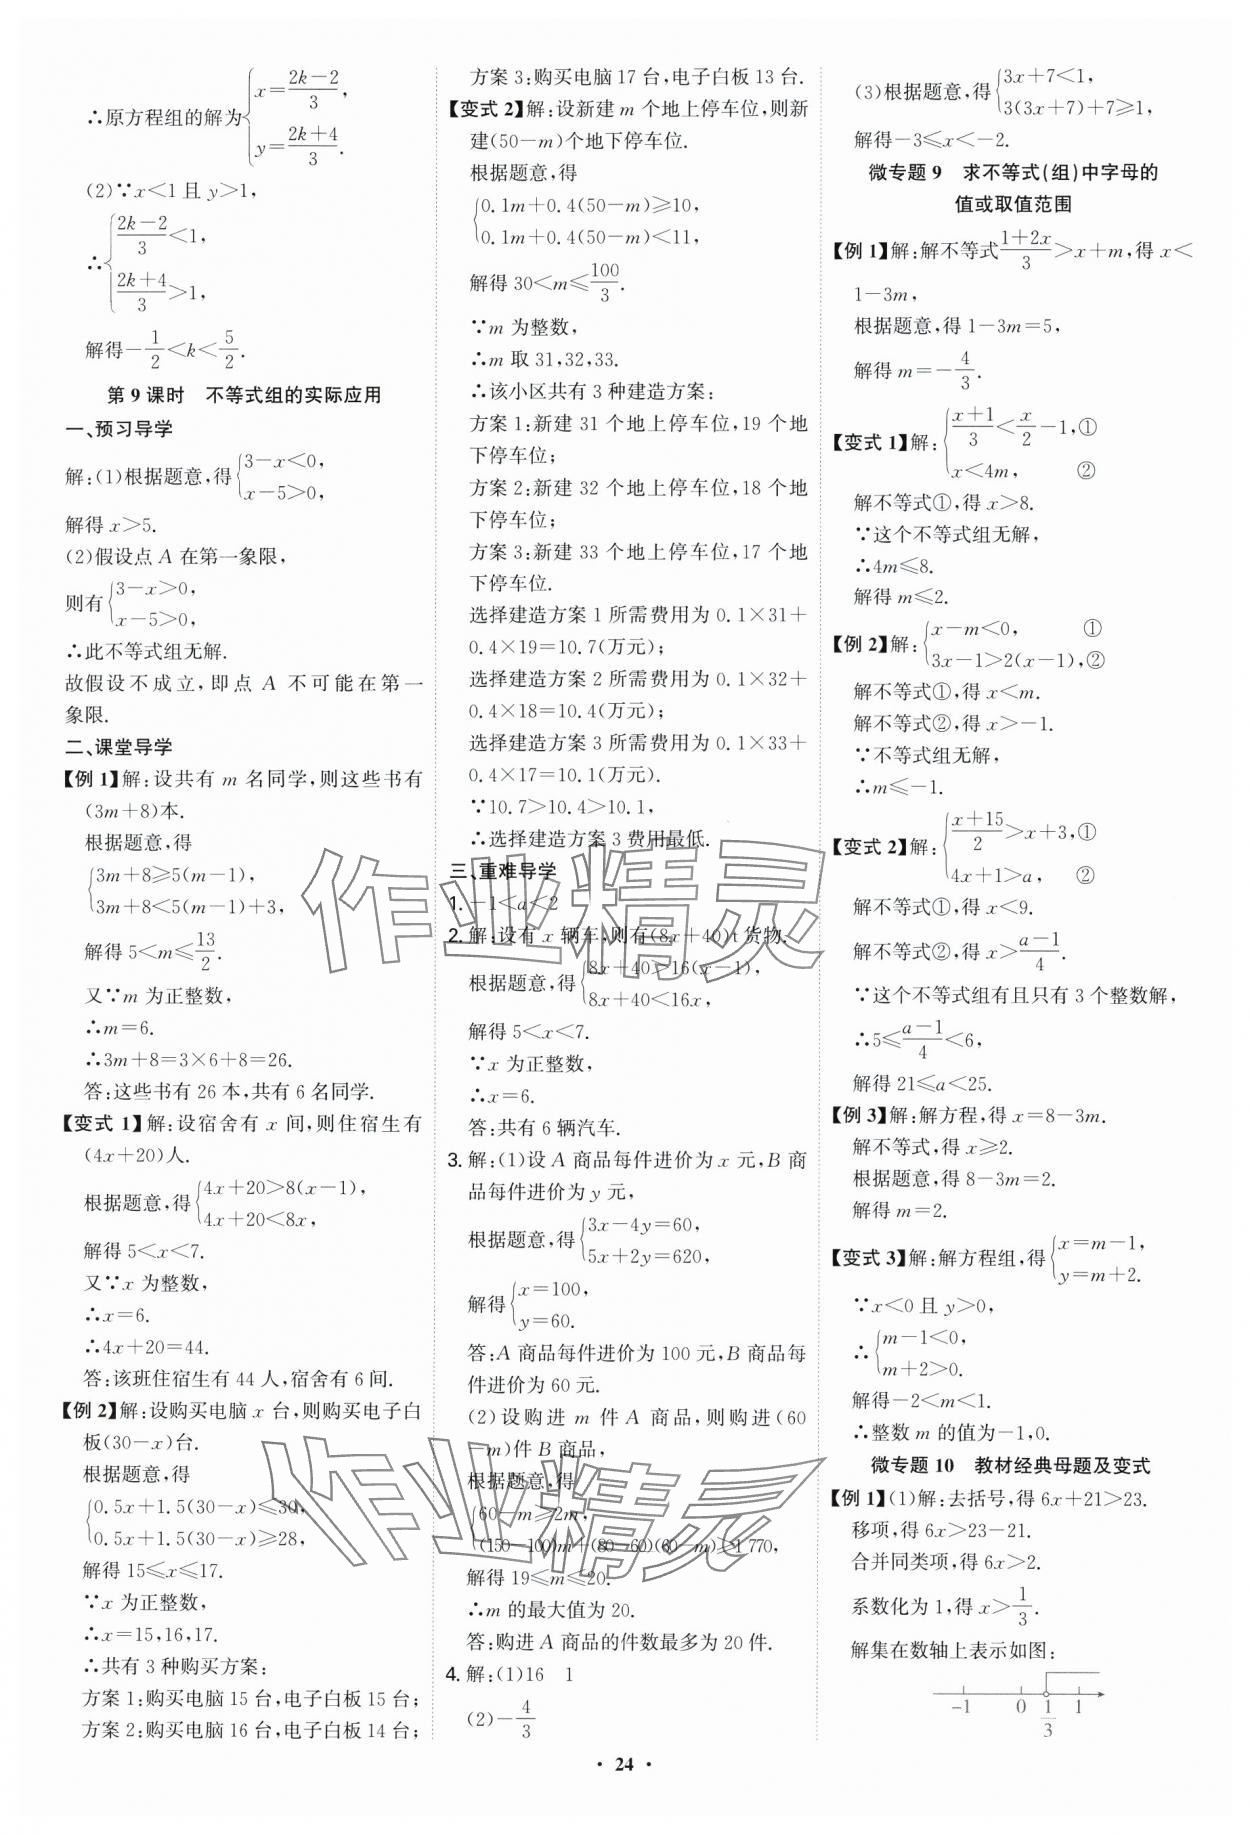 ∴原方程组的解为{x=(2k-2)/3,
y=(2k+4)/3.
(2)∵x<1且y>1,
∴{(2k-2)/3<1,
(2k+4)/3>1,
解得-1/2<k<5/2.
第9课时 不等式组的实际应用
一、预习导学
解:(1)根据题意,得{3-x<0,
x-5>0,
解得x>5.
(2)假设点A在第一象限,
则有{3-x>0,
x-5>0,
∴此不等式组无解.
故假设不成立,即点A不可能在第一
象限.
二、课堂导学
【例1】解:设共有m名同学,则这些书有
(3m+8)本.
根据题意,得
{3m+8⩾5(m-1),
3m+8<5(m-1)+3,
解得5<m⩽13/2.
又∵m为正整数,
∴m=6.
∴3m+8=3×6+8=26.
答:这些书有26本,共有6名同学.
【变式1】解:设宿舍有x间,则住宿生有
(4x+20)人.
根据题意,得{4x+20>8(x-1),
4x+20<8x,
解得5<x<7.
又∵x为整数,
∴x=6.
∴4x+20=44.
答:该班住宿生有44人,宿舍有6间.
【例2】解:设购买电脑x台,则购买电子白
板(30-x)台.
根据题意,得
{0.5x+1.5(30-x)⩽30,
0.5x+1.5(30-x)⩾28,
解得15⩽x⩽17.
∵x为正整数,
∴x=15,16,17.
∴共有3种购买方案:
方案1:购买电脑15台,电子白板15台;
方案2:购买电脑16台,电子白板14台;
方案3:购买电脑17台,电子白板13台.
【变式2】解:设新建m个地上停车位,则新
建(50-m)个地下停车位.
根据题意,得
{0.1m+0.4(50-m)⩾10,
0.1m+0.4(50-m)<11,
解得30<m⩽100/3.
∵m为整数,
∴m取31,32,33.
∴该小区共有3种建造方案:
方案1:新建31个地上停车位,19个地
下停车位;
方案2:新建32个地上停车位,18个地
下停车位;
方案3:新建33个地上停车位,17个地
下停车位.
选择建造方案1所需费用为0.1×31+
0.4×19=10.7(万元);
选择建造方案2所需费用为0.1×32+
0.4×18=10.4(万元);
选择建造方案3所需费用为0.1×33+
0.4×17=10.1(万元).
∵10.7>10.4>10.1,
∴选择建造方案3费用最低.
三、重难导学
1. -1<a<2
2. 解:设有x辆车,则有(8x+40)t货物.
根据题意,得{8x+40>16(x-1),
8x+40<16x,
解得5<x<7.
∵x为正整数,
∴x=6.
答:共有6辆汽车.
3. 解:(1)设A商品每件进价为x元,B商
品每件进价为y元,
根据题意,得{3x-4y=60,
5x+2y=620,
解得{x=100,
y=60.
答:A商品每件进价为100元,B商品每
件进价为60元.
(2)设购进m件A商品,则购进(60
-m)件B商品,
根据题意,得
{60-m⩾2m,
(150-100)m+(80-60)(60-m)⩾1 770,
解得19⩽m⩽20.
∴m的最大值为20.
答:购进A商品的件数最多为20件.
4. 解:(1)16 1
(2)-4/3
(3)根据题意,得{3x+7<1,
3(3x+7)+7⩾1,
解得-3⩽x<-2.
微专题9 求不等式(组)中字母的
值或取值范围
【例1】解:解不等式(1+2x)/3>x+m,得x<
1-3m,
根据题意,得1-3m=5,
解得m=-4/3.
【变式1】解:{(x+1)/3<x/2-1,①
x<4m, ②
解不等式①,得x>8.
∵这个不等式组无解,
∴4m⩽8.
解得m⩽2.
【例2】解:{x-m<0, ①
3x-1>2(x-1),②
解不等式①,得x<m.
解不等式②,得x>-1.
∵不等式组无解,
∴m⩽-1.
【变式2】解:{(x+15)/2>x+3,①
4x+1>a, ②
解不等式①,得x<9.
解不等式②,得x>(a-1)/4.
∵这个不等式组有且只有3个整数解,
∴5⩽(a-1)/4<6,
解得21⩽a<25.
【例3】解:解方程,得x=8-3m.
解不等式,得x⩾2.
根据题意,得8-3m=2.
解得m=2.
【变式3】解:解方程组,得{x=m-1,
y=m+2.
∵x<0且y>0,
∴{m-1<0,
m+2>0.
解得-2<m<1.
∴整数m的值为-1,0.
微专题10 教材经典母题及变式
【例1】(1)解:去括号,得6x+21>23.
移项,得6x>23-21.
合并同类项,得6x>2.
系数化为1,得x>1/3.
解集在数轴上表示如图:
-1 0 1/3 1
• 24 •
作业精灵
作业精灵